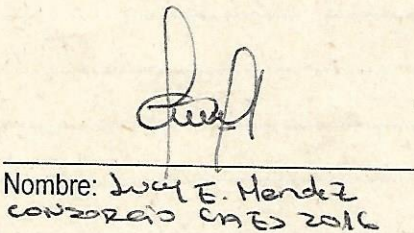 Nombre: Lucy E. Mendez
CONSORCIO CAES 2016